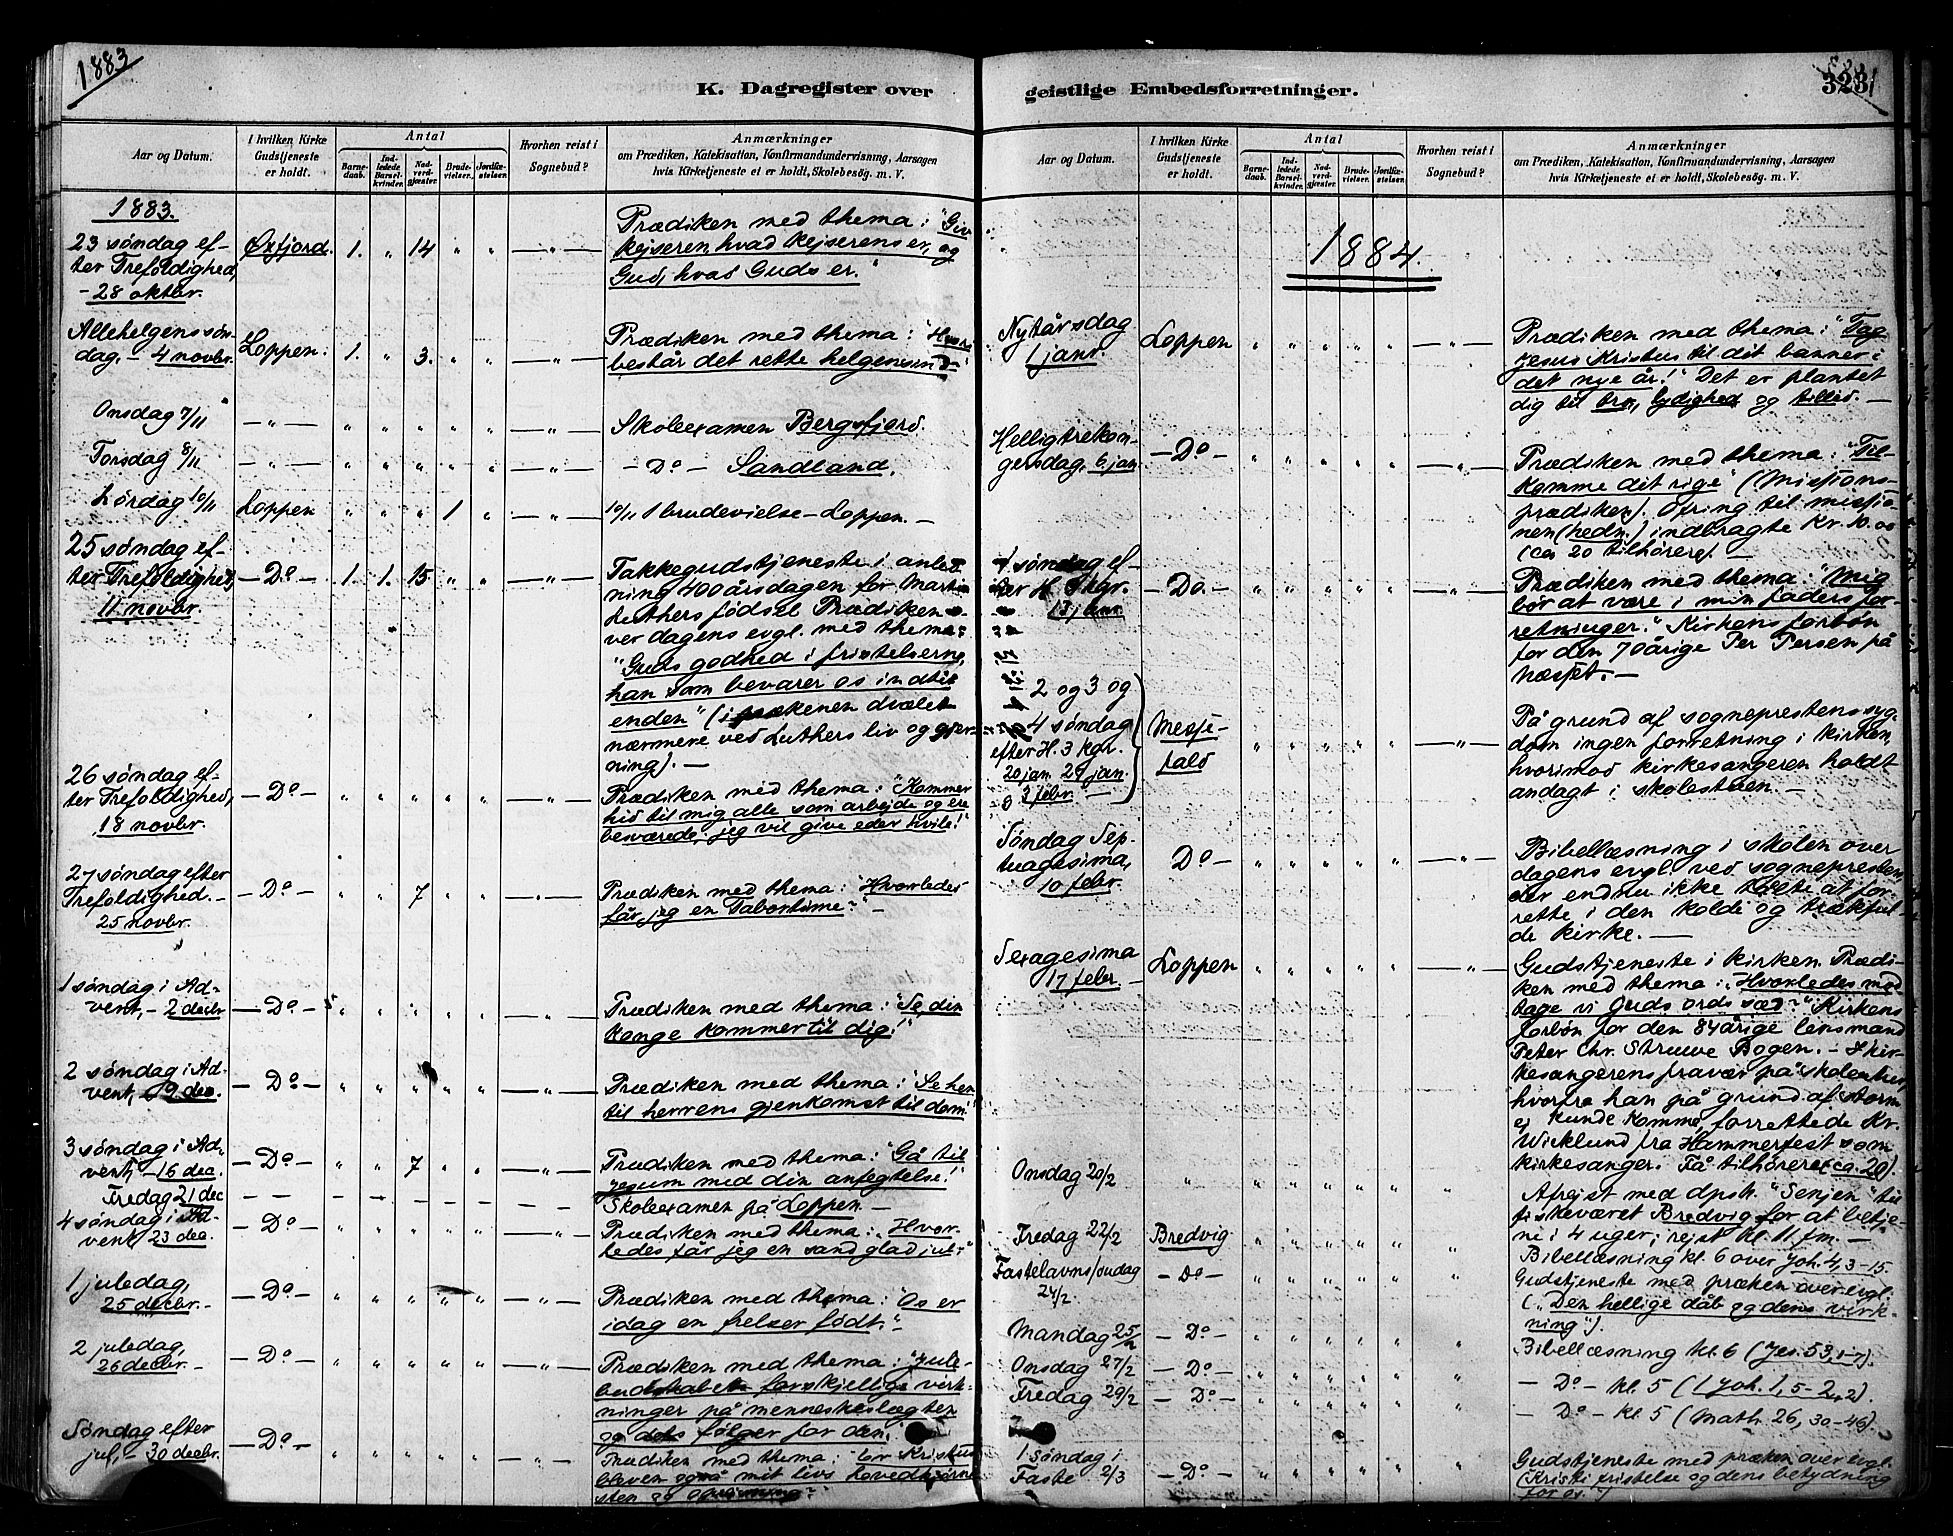 1883
K. Dagregister over
Aar og Datum.
I hvilken Kirke Gudstjeneste er holdt.
Antal
Barnedaab.
Indledede Barselkvinder.
Nadverdgjæster.
Brudevielser.
Jordfæstelser.
Hvorhen reist i Sognebud?
Anmærkninger
om Prædiken, Katekisation, Konfirmandundervisning, Aarsagen
hvis Kirketjeneste ei er holdt, Skolebesög. m. V.
1883.
23 søndag ef-
ter Trefoldighed,
- 28 oktbr.
Øxfjord. 1. " 14 " " — " —
Prædiken med thema: "Giv
kejseren, hvad kejserens er, og
Gud, hvas Guds er."
Allehelgenssøn-
dag, - 4 novbr.
Loppen. 1. " 3. " " — " —
Prædiken med thema: "Hvori
består det rette helgensind
Onsdag 7/11 — " — " " " " " — " — Skoleexamen Bergsfjord.
Torsdag 8/11 — " — " " " " " — " — — Do — Sandland.
Lørdag 10/11 Loppen " " " 1 " — " — 10/11 1 brudevielse - Loppen. —
25 søndag ef-
ter Trefoldighed,
11 novbr.
— Do — 1. 1. 15 " " — " —
Takkegudstjeneste i anled
ning 400 årsdagen for Martin
Luthers fødsel Prædiken o-
ver dagens evgl. med thema:
"Guds godhed i fristelserne,
han som bevarer os indtil
enden" (i prækenen dvælet
nærmere ved Luthers liv og gjer-
ning). —
26 søndag ef-
ter Trefoldighed,
18 novbr.
— Do — " " " " " — " —
Prædiken med thema: "Kommer
hid til mig alle som arbejde og ere
besværede; jeg vil give eder hvile!"
27 søndag efter
Trefoldighed. -
25 novbr.
— Do — " " 7 " " — " —
Prædiken med thema: "Hvorledes
får jeg en Tabortime?" —
1 søndag i Ad-
vent, - 2 decbr
— Do — " " " " " — " —
Prædiken med thema: "Se, din
konge kommer til dig!"
2 søndag i Ad-
vent, 9 dec.
— Do — " " " " " — " —
Prædiken med thema: "Se hen
til herrens gjenkomst til dom!"
3 søndag i Ad-
vent, - 16 dec.
— Do — " " 7 " " — " —
Prædiken med thema: "Gå til
jesum med din anfegtelse!"
Fredag 21 dec — — — — — — — Skoleexamen på Loppen —
4 søndag i Ad-
vent, 23 dec.
— Do — " " " " " — " —
Prædiken med thema: "Hvor-
ledes får jeg en sand glad jul?"
1 juledag,
25 decbr. —
— Do — " " " " " — " —
Prædiken med thema: "Os er
idag en frelser født." —
2 juledag,
26 decbr. —
— Do — " " " " " — " —
Prædiken med thema: "Jule-
budskabets forskjellige virk-
ninger på menneskeslægten
og dets følger for den."
Søndag efter
jul, - 30 decbr.
— Do — " " " " " — " —
Prædiken med thema: "Er Kristus
bleven også mit livs hovedhjørne
sten og
geistlige Embedsforretninger.
323
Aar og Datum.
I hvilken Kirke Gudstjeneste er holdt.
Antal
Barnedaab.
Indledede Barselkvinder.
Nadverdgjæster.
Brudevielser.
Jordfæstelser.
Hvorhen reist i Sognebud?
Anmærkninger
om Prædiken, Katekisation, Konfirmandundervisning, Aarsagen
hvis Kirketjeneste ei er holdt, Skolebesög. m. V.
1884.
Nytårsdag
1 janr.
Loppen " " " " " — " —
Prædiken med thema: "Tag
Jesus Kristus til dit banner i
det nye år!" Det er plantet
dig til tro, lydighed og tillid. —
Helligtrekon-
gersdag, 6 jan.
— Do — " " " " " — " —
Prædiken med thema: "Til-
komme dit rige" (Missions-
prædiken). Ofring til missio-
nen (hedn.) indbragte Kr. 10.00
(ca 20 tilhørere). —
1 søndag ef-
ter H. 3 kgr.
13 janr.
— Do. — " " " " " — " —
Prædiken med thema: "Mig
bør at være i min faders for-
retninger." Kirkens forbøn
for den 70 årige Per Persen på
næsset. —
2 og 3 og
4 søndag
efter H. 3 kgr.
20 jan. 27 jan.
og 3 febr. —
Messe-
fald " " " " " — " —
På grund af sogneprestens syg-
dom ingen forretning i kirken,
hvorimod kirkesangeren holdt
andagt i skolestuen. —
Søndag Sep-
tuagesima,
10 febr.
Do — " " " " " — " —
Bibellæsning i skolen over
dagens evgl. ved sognepresten,
der endnu ikke turde at for-
rette i den kolde og trækful-
de kirke. —
Sexagesima
17 febr. —
Loppen " " " " " — " —
Gudstjeneste i kirken. Prædi-
ken med thema: "Hvorledes mod
tage vi Guds ords sæd?" Kirkens
forbøn for den 84 årige lensmand
Peter Chr. Struwe Bogen. - I kir-
kesangerens fravær på skolen hus,
hvorfra han på grund af storm
ej kunde komme, forrettede Kr.
Wicklund fra Hammerfest som
kirkesanger. Få tilhørere (ca. 20).
Onsdag 20/2 " " " " " " "
Afrejst med dpsk. "Senjen" til
fiskeværet Bredvig for at betje-
ne i 4 uger; rejst kl. 11. fm. —
Fredag 22/2 Bredvig " " " " " " Bibellæsning kl. 6 over Joh. 4, 3-15.
Fastelavnssøndag
24/2.
— Do — " " " " " "
Gudstjeneste med præken over evgl.
("Den hellige dåb og dens virk-
ning").
Mandag 25/2 — Do — " " " " " " Bibellæsning kl. 6 (Jes. 53, 1-7).
Onsdag 27/2 — Do — " " " " " " — Do — kl. 5 (1 Joh. 1, 5-2, 2).
Fredag 29/2 — Do — " " " " " " — Do — kl. 5 (Math. 26, 30-46).
1 søndag i
Faste 2/3
— Do — " " " " " "
Gudstjeneste med præken over evgl.
(Kristi fristelse og dens betydning
for os.")